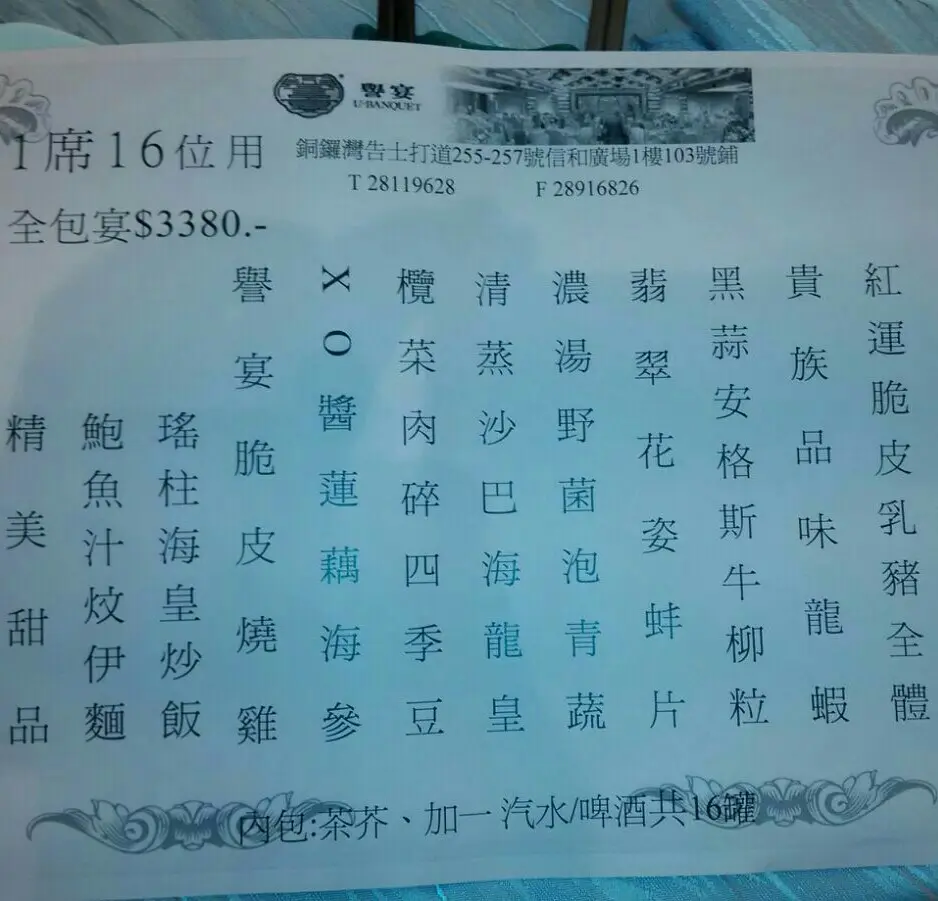 譽宴
U-BANQUET
銅鑼灣告士打道255-257號信和廣場1樓103號鋪
T 28119628 F 28916826
1席16位用
全包宴$3380.-
紅運脆皮乳豬全體
貴族品味龍蝦
黑蒜安格斯牛柳粒
翡翠花姿蚌片
濃湯野菌泡青蔬
清蒸沙巴海龍皇
欖菜肉碎四季豆
XO醬蓮藕海參
譽宴脆皮燒雞
瑤柱海皇炒飯
鮑魚汁炆伊麵
精美甜品
內包:茶芥、加一 汽水/啤酒共16罐